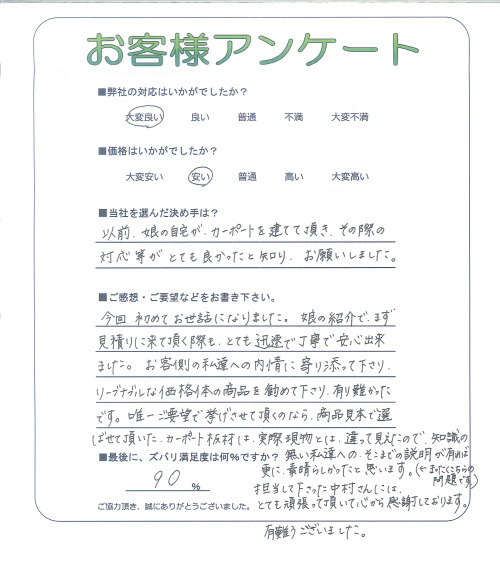 お客様アンケート
■弊社の対応はいかがでしたか？
大変良い 良い 普通 不満 大変不満
■価格はいかがでしたか？
大変安い 安い 普通 高い 大変高い
■当社を選んだ決め手は？
以前、娘の自宅が、カーポートを建てて頂き、その際の
対応等がとても良かったと知り、お願いしました。
■ご感想・ご要望などをお書き下さい。
今回 初めてお世話になりました。娘の紹介で、まず
見積りに来て頂く際も、とても迅速で丁寧で安心出来
ました。お客側の私達への内情に寄り添って下さり、
リーブナブルな価格体の商品を勧めて下さり、有り難かった
です。唯一ご要望で挙げさせて頂くのなら、商品見本で選
ばせて頂いた、カーポート板材は、実際現物とは、違って見えたので、知識の
無い私達への、そこまでの説明が有れば
更に、素晴らしかったと思います。(まったくこちらの
問題です)
■最後に、ズバリ満足度は何％ですか？
90 %
担当して下さった中村さんには、
とても頑張って頂いて心から感謝しております。
ご協力頂き、誠にありがとうございました。
有難うございました。